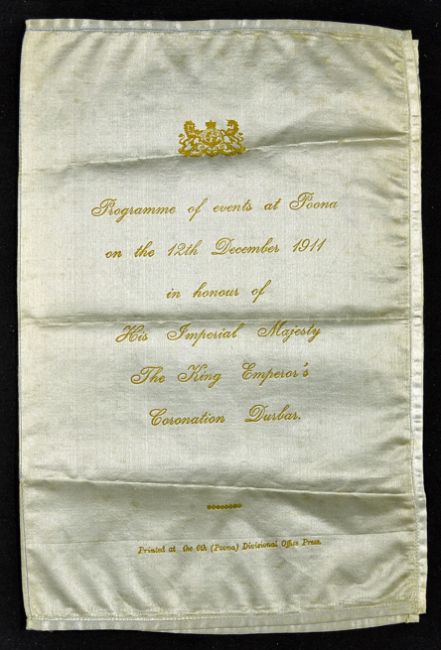 Programme of events at Poona
on the 12th December 1911
in honour of
His Imperial Majesty
The King Emperor's
Coronation Durbar.
Printed at the 6th (Poona) Divisional Office Press.